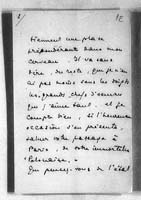 tiennent une place
prépondérante dans mon
cerveau. Il va sans
dire, du reste, que je n'en
ai pas moins sous les doigts
les grands chefs d'œuvre
que j'aime tant. et je
compte bien, si l'heureuse
occasion s'en présente,
saluer votre passage à
Paris, de votre immortelle
Que pensez-vous de l'état